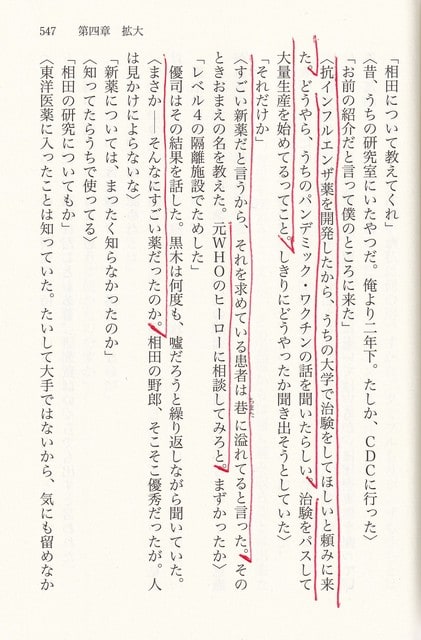 547　第四章　拡大
「相田について教えてくれ」
〈昔、うちの研究室にいたやつだ。俺より二年下。たしか、ＣＤＣに行った〉
「お前の紹介だと言って僕のところに来た」
〈抗インフルエンザ薬を開発したから、うちの大学で治験をしてほしいと頼みに来
た。どうやら、うちのパンデミック・ワクチンの話を聞いたらしい。治験をパスして
大量生産を始めてるってこと。しきりにどうやったか聞き出そうとしていた〉
「それだけか」
〈すごい新薬だと言うから、それを求めている患者は巷に溢れてると言った。その
ちまた
ときおまえの名を教えた。元ＷＨＯのヒーローに相談してみろと。まずかったか〉
「レベル４の隔離施設でためした」
優司はその結果を話した。黒木は何度も、嘘だろうと繰り返しながら聞いていた。
〈まさか――そんなにすごい薬だったのか。相田の野郎、そこそこ優秀だったが。人
は見かけによらないな〉
「新薬については、まったく知らなかったのか」
〈知ってたらうちで使ってる〉
「相田の研究についてもか」
〈東洋医薬に入ったことは知っていた。たいして大手ではないから、気にも留めなか